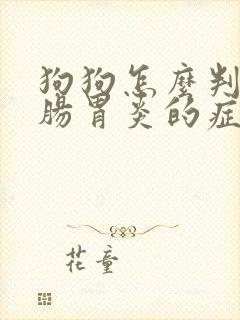 狗狗怎麼判
腸胃炎的症
花童